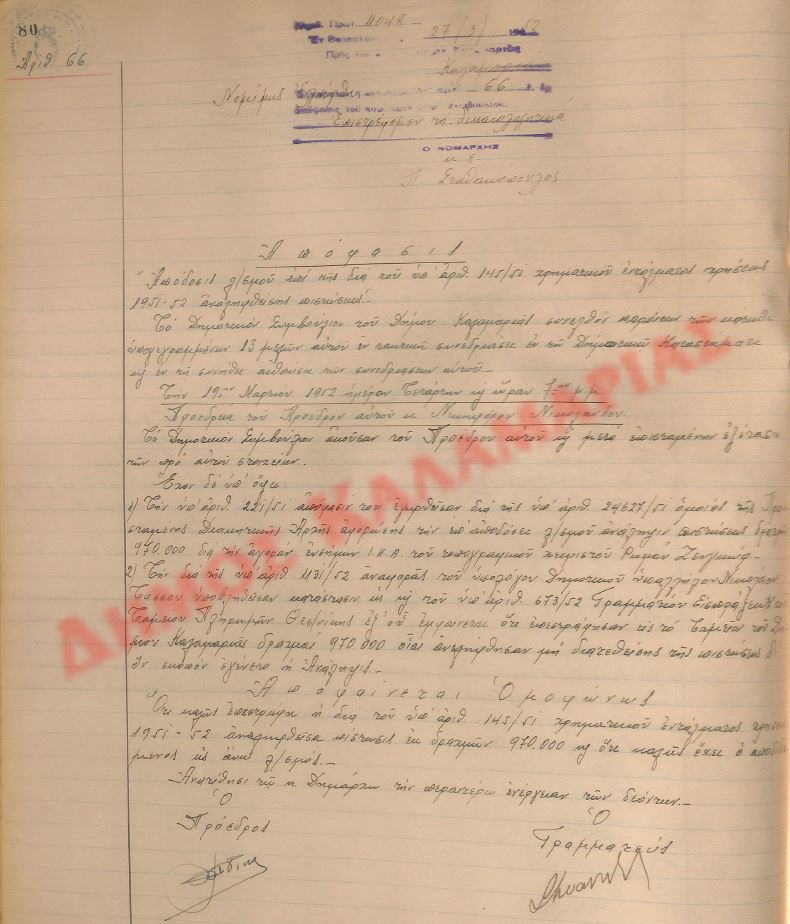 80
Ἀριθ. 66
Ἀριθ. Πρωτ. 11048 27/3/1952
Καλαμαριᾶς
66
Νομίμως
Ἐπιστρέφομεν τὰ δικαιολογητικά
Ο ΝΟΜΑΡΧΗΣ
κ.ἐ.
Π. Σταθακόπουλος
Ἀπόφασις
"Ἀπόδοσις λ/σμοῦ ἐπὶ τῆς διὰ τοῦ ὑπ' ἀριθ. 145/51 χρηματικοῦ ἐντάλματος χρήσεως
1951-52 ἀναληφθείσης πιστώσεως"
Τὸ Δημοτικὸν Συμβούλιον τοῦ Δήμου Καλαμαριᾶς συνελθὸν παρόντων τῶν κάτωθι
ὑπογεγραμμένων 13 μελῶν αὐτοῦ ἐν τακτικῇ συνεδριάσει ἐν τῷ Δημοτικῷ Καταστήματι
κ ἐν τῇ συνήθει αἰθούσῃ τῶν συνεδριάσεων αὐτοῦ.-
Τὴν 19ην Μαρτίου 1952 ἡμέραν Τετάρτην κ ὥραν 7ην μ.μ
Προεδρίᾳ τοῦ Προέδρου αὐτοῦ κ. Νικηφόρου Νικολαΐδου.
Τὸ Δημοτικὸν Συμβούλιον ἀκοῦσαν τοῦ Προέδρου αὐτοῦ κ μετὰ ἐπισταμένην ἐξέτασιν
τῶν πρὸ αὐτοῦ στοιχείων.
Ἔχον δὲ ὑπ' ὄψει:
1) Τὴν ὑπ' ἀριθ. 221/51 ἀπόφασίν του ἐγκριθεῖσαν διὰ τῆς ὑπ' ἀριθ. 24627/51 ὁμοίας τῆς Προϊ
σταμένης Διοικητικῆς Ἀρχῆς ἀφορώσης τὴν ἐπ' ἀποδόσει λ/σμοῦ ἀνάληψιν πιστώσεως δραχμ
970.000 διὰ τὴν ἀγορὰν ἐνσήμων Ι.Κ.Α. τοῦ τοπογραφικοῦ χειριστοῦ Ρωμαν
2) Τὴν διὰ τῆς ὑπ' ἀριθ. 1131/52 ἀναφορᾶς τοῦ ὑπολόγου Δημοτικοῦ ὑπαλλήλου Νικολάου
Τάσσου ὑποβληθεῖσαν κατάστασιν ὡς κ τοῦ ὑπ' ἀριθ. 673/52 Γραμματίου Εἰσπράξεως τοῦ
Ταμείου Πληρωμῶν Θεσ/νίκης ἐξ οὗ ἐμφαίνεται ὅτι ἐπεστράφησαν εἰς τὸ Ταμεῖον τοῦ Δή
μου Καλαμαριᾶς δραχμαὶ 970.000 ἀναληφθησαν μὴ διατεθείσης τῆς πιστώσεως δι'
ὃν σκοπὸν ἐγένετο ἡ ἀνάληψις.-
Ἀποφαίνεται Ὁμοφώνως
Ὅτι καλῶς ἐπεστράφη ἡ διὰ τοῦ ὑπ' ἀριθ. 145/51 χρηματικοῦ ἐντάλματος χρήσεως
1951-52 ἀναληφθεῖσα πίστωσις ἐκ δραχμῶν 970.000 κ ὅτι καλῶς ἔχει ὁ ἀποδιδό
μενος ὡς ἄνω λ/σμός.-
Ἀνατίθησι τῷ κ Δημάρχῳ τὴν περαιτέρω ἐνέργειαν τῶν δεόντων.-
Ὁ
Πρόεδρος
Ὁ
Γραμματεύς
ΔΗΜΟΣ ΚΑΛΑΜΑΡΙΑΣ